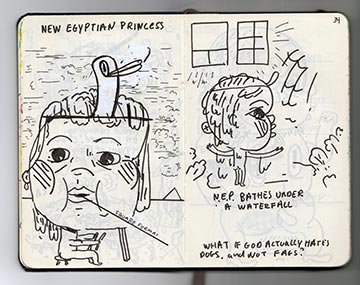 NEW EGYPTIAN PRINCESS
SQUARE FORMAT
34
N.E.P. BATHES UNDER
A WATERFALL
WHAT IF GOD ACTUALLY HATES
DOGS, and NOT FAGS?